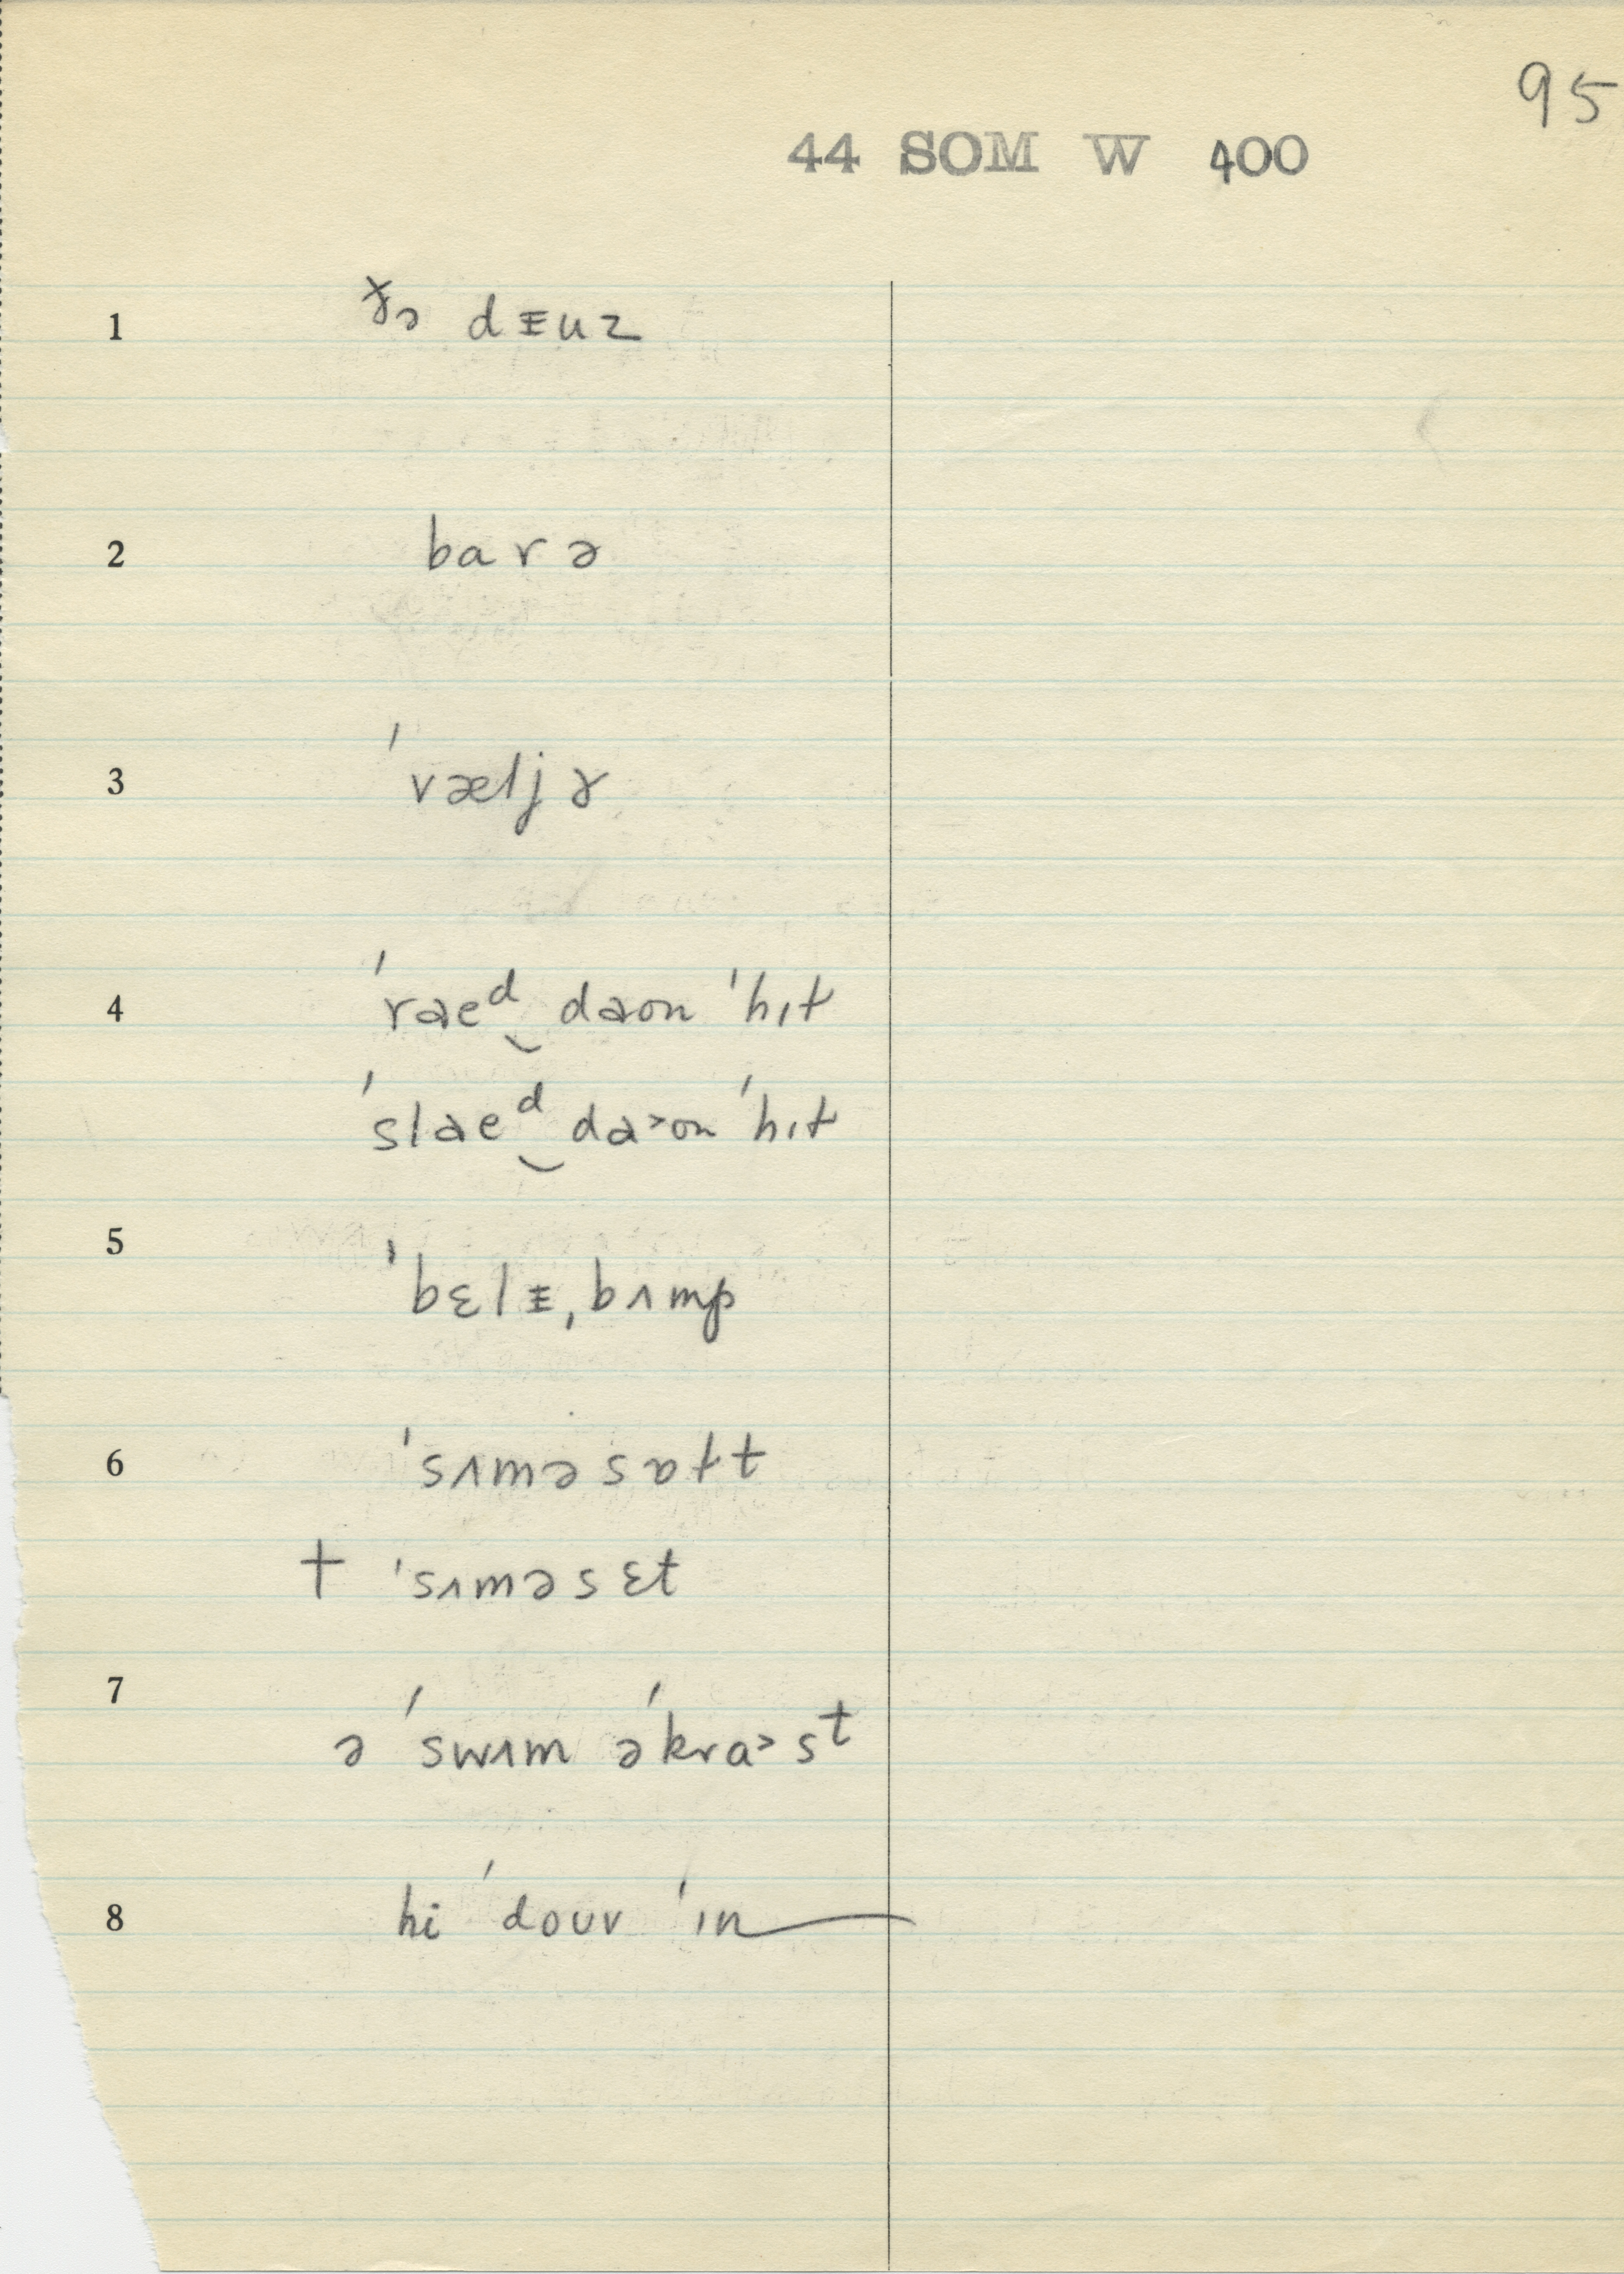 95
44 SOM W 400
1 ðə dɪuz
2 barə
3 ˈvæljɚ
4 ˈraeᵈ‿daon ˈhɪt
ˈslaeᵈ‿da˃on ˈhɪt
5 ˈbɛlɪˌbʌmp
6 ˈsʌməsɒtt
† ˈsʌməsɛt
7 ə ˈswɪm əˈkra˃sᵗ
8 hi ˈdouv ˈɪn